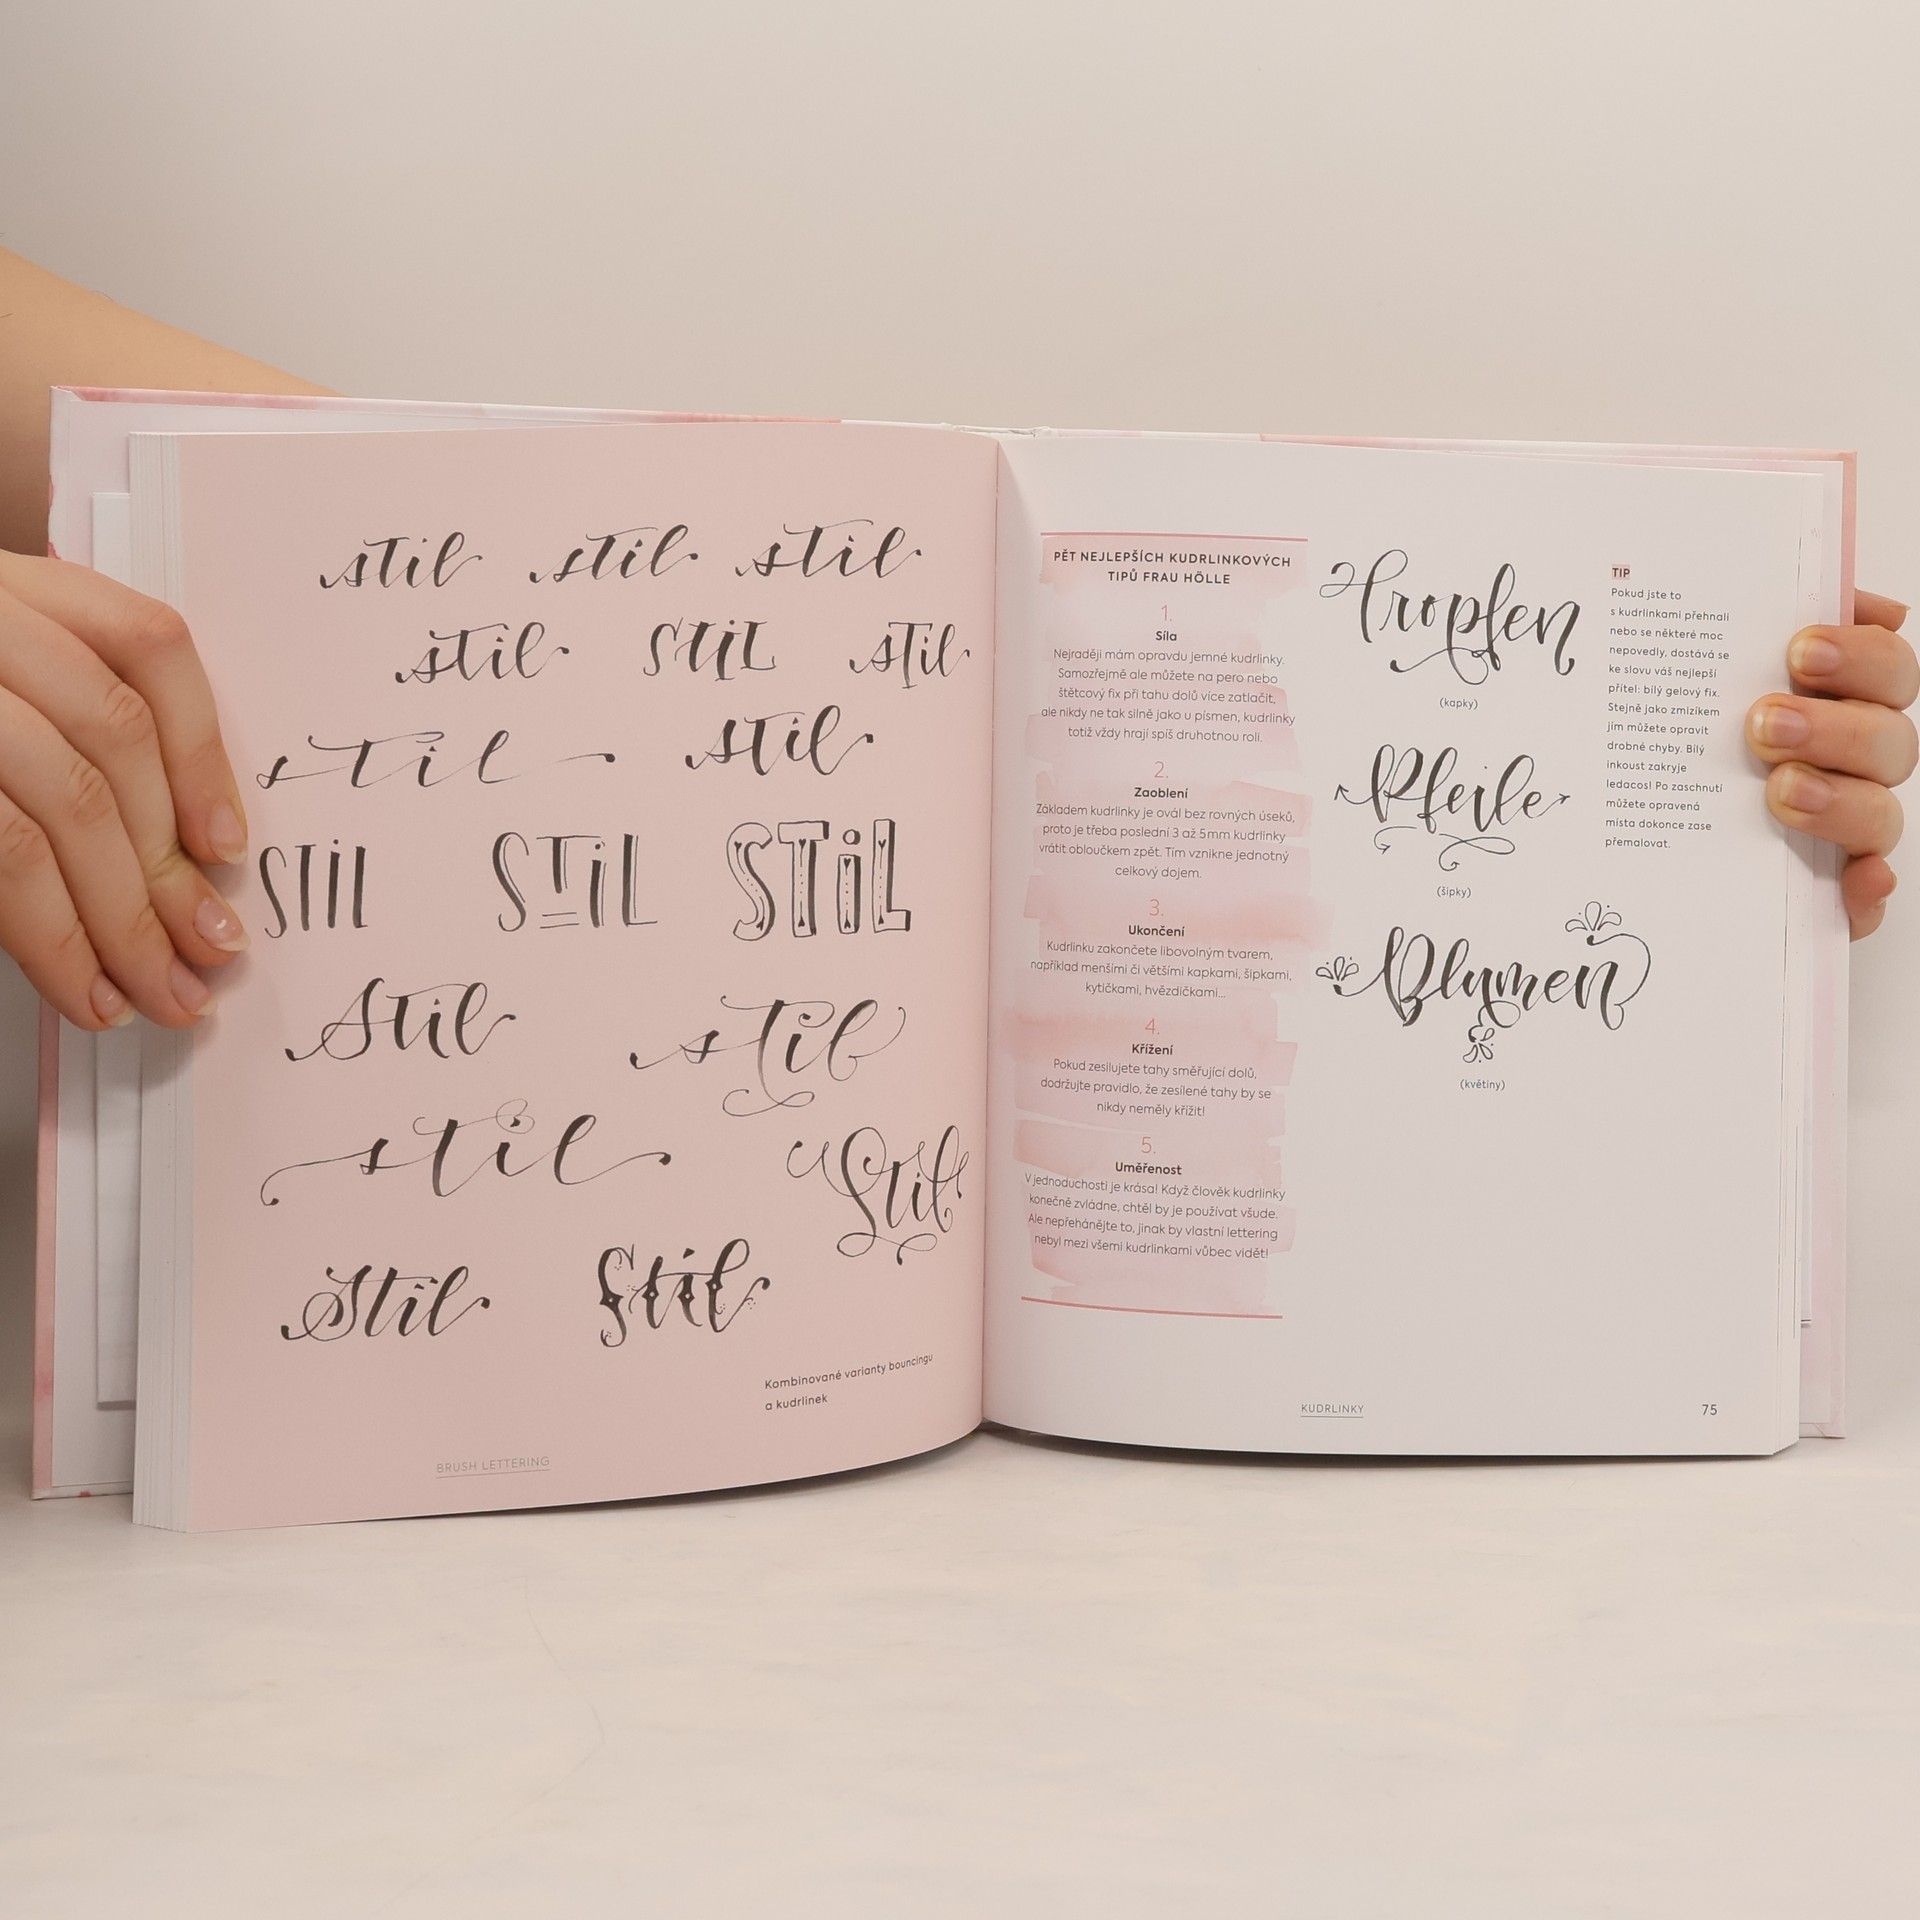 stil stil stil
stil STiL sTil
stil stil
STIL STiL STiL
Stil stil
stil Stil
Stil Stil
Kombinované varianty bouncingu
a kudrlinek
BRUSH LETTERING
PĚT NEJLEPŠÍCH KUDRLINKOVÝCH
TIPŮ FRAU HÖLLE
1.
Síla
Nejraději mám opravdu jemné kudrlinky.
Samozřejmě ale můžete na pero nebo
štětcový fix při tahu dolů více zatlačit,
ale nikdy ne tak silně jako u písmen, kudrlinky
totiž vždy hrají spíš druhotnou roli.
2.
Zaoblení
Základem kudrlinky je ovál bez rovných úseků,
proto je třeba poslední 3 až 5 mm kudrlinky
vrátit obloučkem zpět. Tím vznikne jednotný
celkový dojem.
3.
Ukončení
Kudrlinku zakončete libovolným tvarem,
například menšími či většími kapkami, šipkami,
kytičkami, hvězdičkami...
4.
Křížení
Pokud zesilujete tahy směřující dolů,
dodržujte pravidlo, že zesílené tahy by se
nikdy neměly křížit!
5.
Uměřenost
V jednoduchosti je krása! Když člověk kudrlinky
konečně zvládne, chtěl by je používat všude.
Ale nepřehánějte to, jinak by vlastní lettering
nebyl mezi všemi kudrlinkami vůbec vidět!
Tropfen
(kapky)
Pfeile
(šipky)
Blumen
(květiny)
TIP
Pokud jste to
s kudrlinkami přehnali
nebo se některé moc
nepovedly, dostává se
ke slovu váš nejlepší
přítel: bílý gelový fix.
Stejně jako zmizíkem
jím můžete opravit
drobné chyby. Bílý
inkoust zakryje
ledacos! Po zaschnutí
můžete opravená
místa dokonce zase
přemalovat.
KUDRLINKY
75